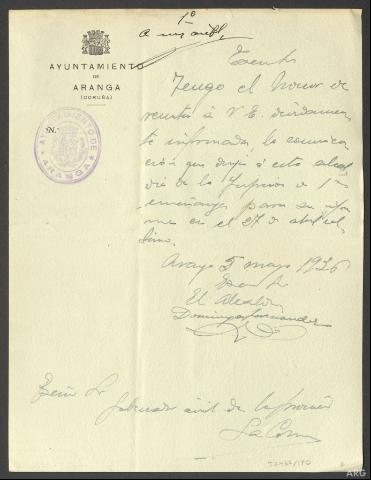 1º
AYUNTAMIENTO
DE
ARANGA
(CORUÑA)
N.
AYUNTAMIENTO DE
ARANGA
Tengo el honor de
á V. E. debidamen-
te informada, la comunica-
ción que dirigió á esta alcal-
día de la Inspección de 1ª
enseñanza para su infor-
me en el 27 de abril ul-
timo.
5 mayo 1936
El Alcalde
Domingo Fernández
Gobernador civil de la provincia
La Coruña
ARG